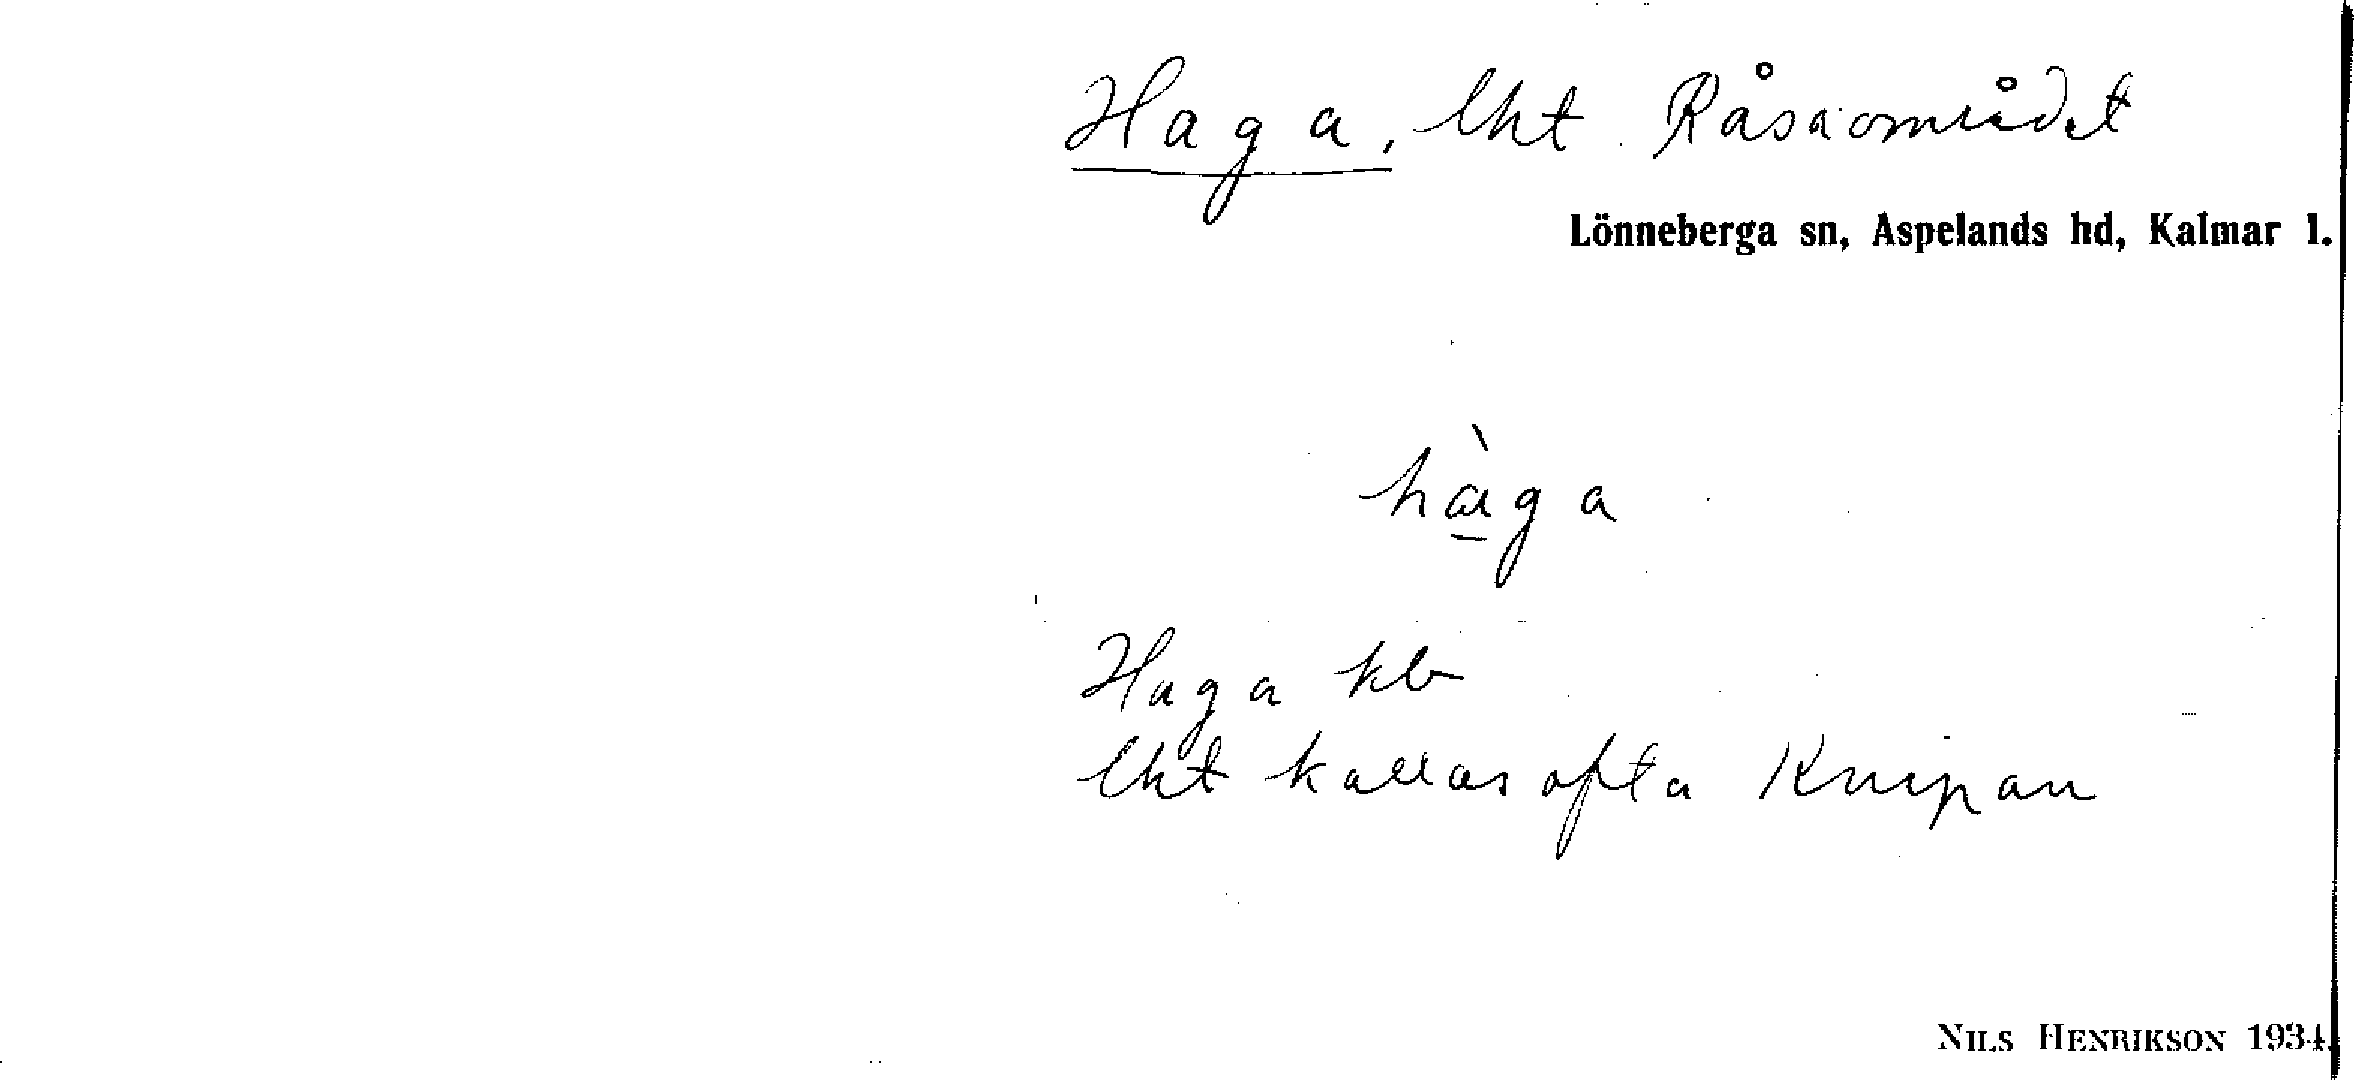 Haga, lht Råsaområdet
Lönneberga sn, Aspelands hd, Kalmar l.
hàga
Haga kb
lht kallas ofta Knipan
NILS HENRIKSON 1934.